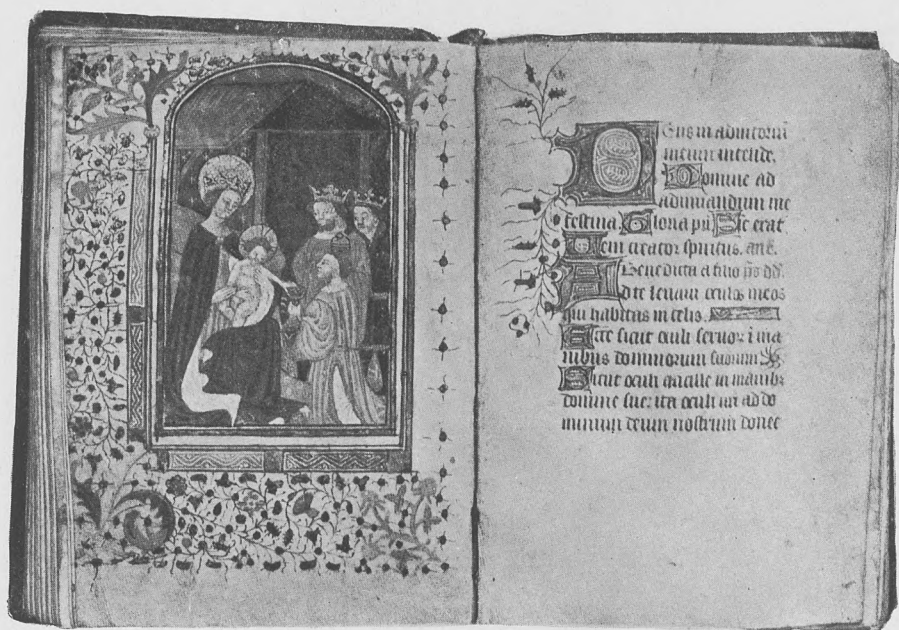 Deus in adiutoriū
meum intende.
Domine ad
adiuuandum me
festina. Gloria pr̄i Sic erat
Ueni creator spiritus. an̄t.
Benedicta a filio
Ad te leuaui oculos meos
qui habitas in celis.
Ecce sicut oculi seruoꝝ ī ma
nibus dominorum suorum
Sicut oculi ancille in manibꝰ
domine sue: ita oculi nr̄i ad do
minum deum nostrum donec